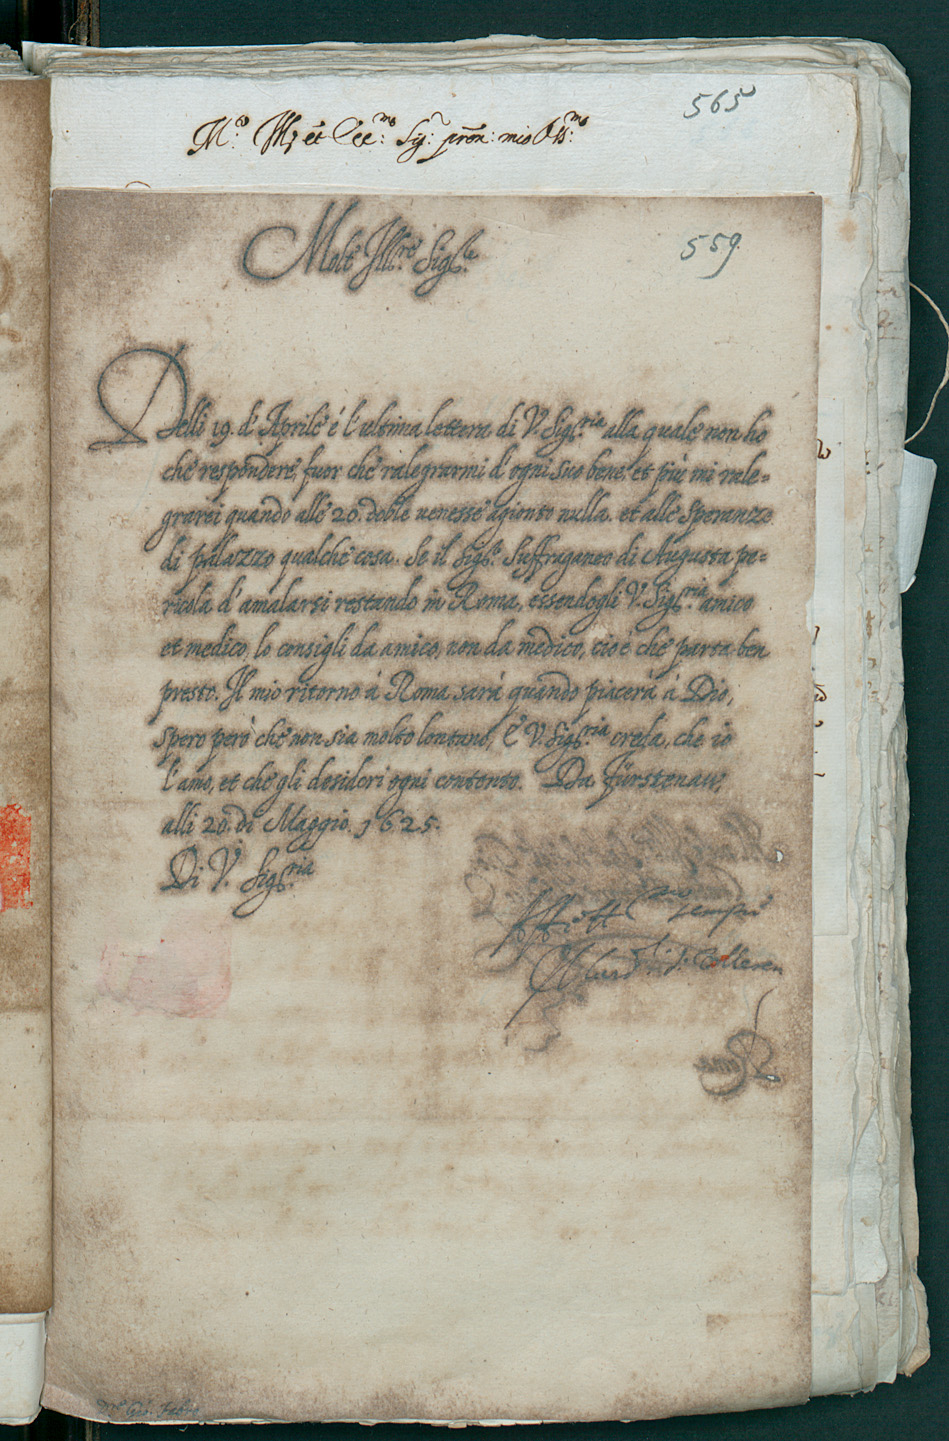 565
M.º Ill: et Ecc.mo: Sig: pron: mio Oss.mo:
559.
Molt' Ill.re Sig.re
Delli 19. d'Aprile é l'ultima lettera di V. Sig.ria alla quale non ho
che respondere, fuor che ralegrarmi d'ogni suo bene, et più mi rale=
grarei quando alle 20. doble venesse agionto nulla. et alle Speranze
di pallazzo qualche cosa. Se il Sig.re Suffraganeo di Augusta pe=
ricola d'amalarsi restando in Roma, essendogli V. Sig.ria amico
et medico, lo consigli da amico, non da medico, cioè che parta ben
presto. Il mio ritorno á Roma sará quando piacerá á Dio,
spero però che non sia molto lontano, E V. Sig.ria creda, che io
l'amo, et che gli desideri ogni contento. Da Fürstenau,
alli 20. di Maggio. 1625.
Di V. Sig.ria
Aff.mo sempre
Zolleren
Roma
Gio. Fabro